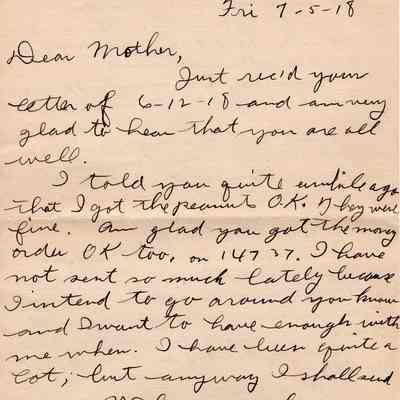 Fri 7-5-18
Dear Mother,
Just rec'd your
letter of 6-12-18 and am very
glad to hear that you are all
well.
I told you quite awhile ago
that I got the peanuts O.K. They were
fine. Am glad you got the money
order OK too, on 147 37. I have
not sent so much lately because
I intend to go around you know
and I want to have enough with
me when. I have been quite a
lot; but anyway I shall send